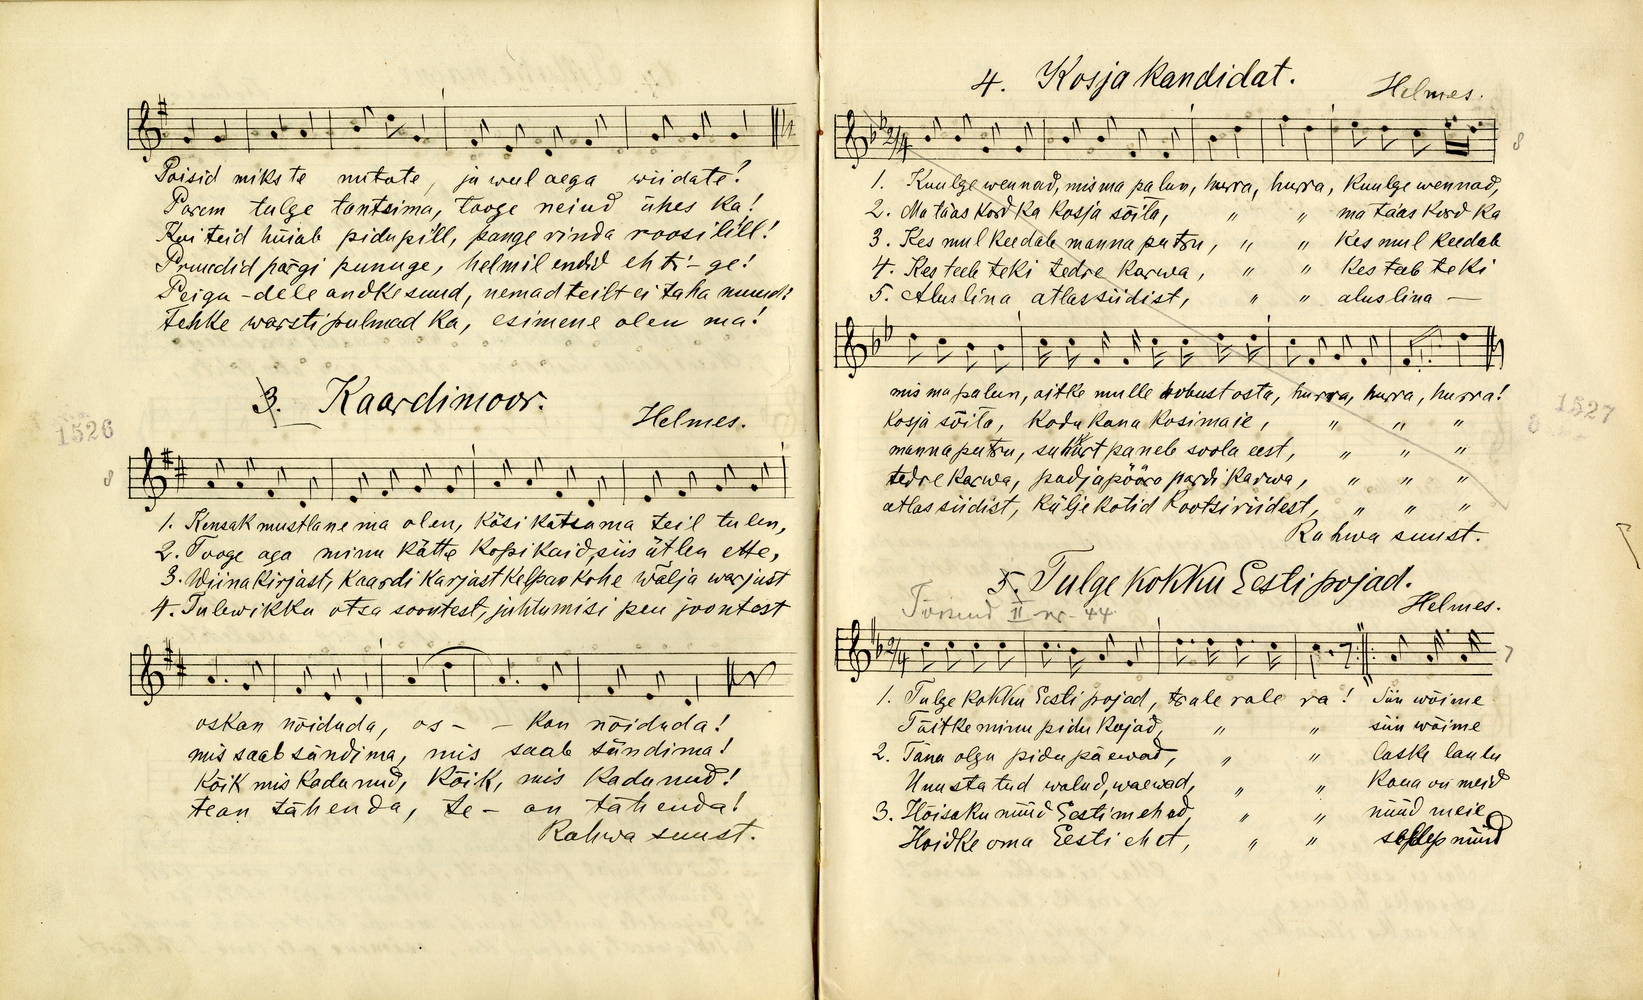 Poisid miks te nutate, ja weel aega wiidate?
Parem tulge tantsima, tooge neiud ühes ka!
Kui teid hüiab pidu pill, pange rinda roosi lill!
Pruudid pärgi punuge, helmil endid ehti-ge!
Peigu-dele andke suud, nemad teilt ei taha muud:
tehke warsti pulmad ka, esimene olen ma!
3. Kaardimoor.
Helmes.
1526
8
1. Kensak mustlane ma olen, käsi katsuma teil tulen,
2. Tooge aga minu kätte kopikaid, siis ütlen ette,
3. Wiina kirjast, kaardi karjast kelpao kohe wälja warjust
4. Tulewikku otsa soontest, juhtumisi peu joontest
oskan nõiduda, os - - kan nõiduda!
mis saab sündima, mis saab sündima!
kõik mis kadunud, kõik, mis kadunud!
tean tähenda, te - an tähenda!
Rahwa suust.
4. Kosja kandidat.
Helmes.
2/4
8
1. Kuulge wennad, mis ma palun, hurra, hurra, kuulge wennad,
2. Ma tääs kord ka kosja sõita, " " ma tääs kord ka
3. Kes mul keedab manna putru, " " Kes mul keedab
4. Kes teeb teki tedre karwa, " " Kes teeb teki
5. Alus lina atlas siidist, " " alus lina —
mis ma palun, aitke mulle hobust osta, hurra, hurra, hurra!
kosja sõita, kodu kana kosimaie, " " "
manna putru, suhkurt paneb soola eest, " " "
tedre karwa, padja pööra pardi karwa, " " "
atlas siidist, külje kotid Rootsi riidest, " " "
Rahwa suust.
1527
5. Tulge kokku Eesti pojad.
Helmes.
II nr. 44
2/4
7
1. Tulge kokku Eesti pojad, trale rale ra! Siin wõime
Täitke minu pidu kojad, " " siin wõime
2. Täna olgu pidu päewad, " " laska laulu
Unustatud walud, waewad, " " Kuna on meid
3. Hõisaku nüüd Eesti mehed, " " nüüd meie
Hoidke oma Eesti ehet, " " nüüd